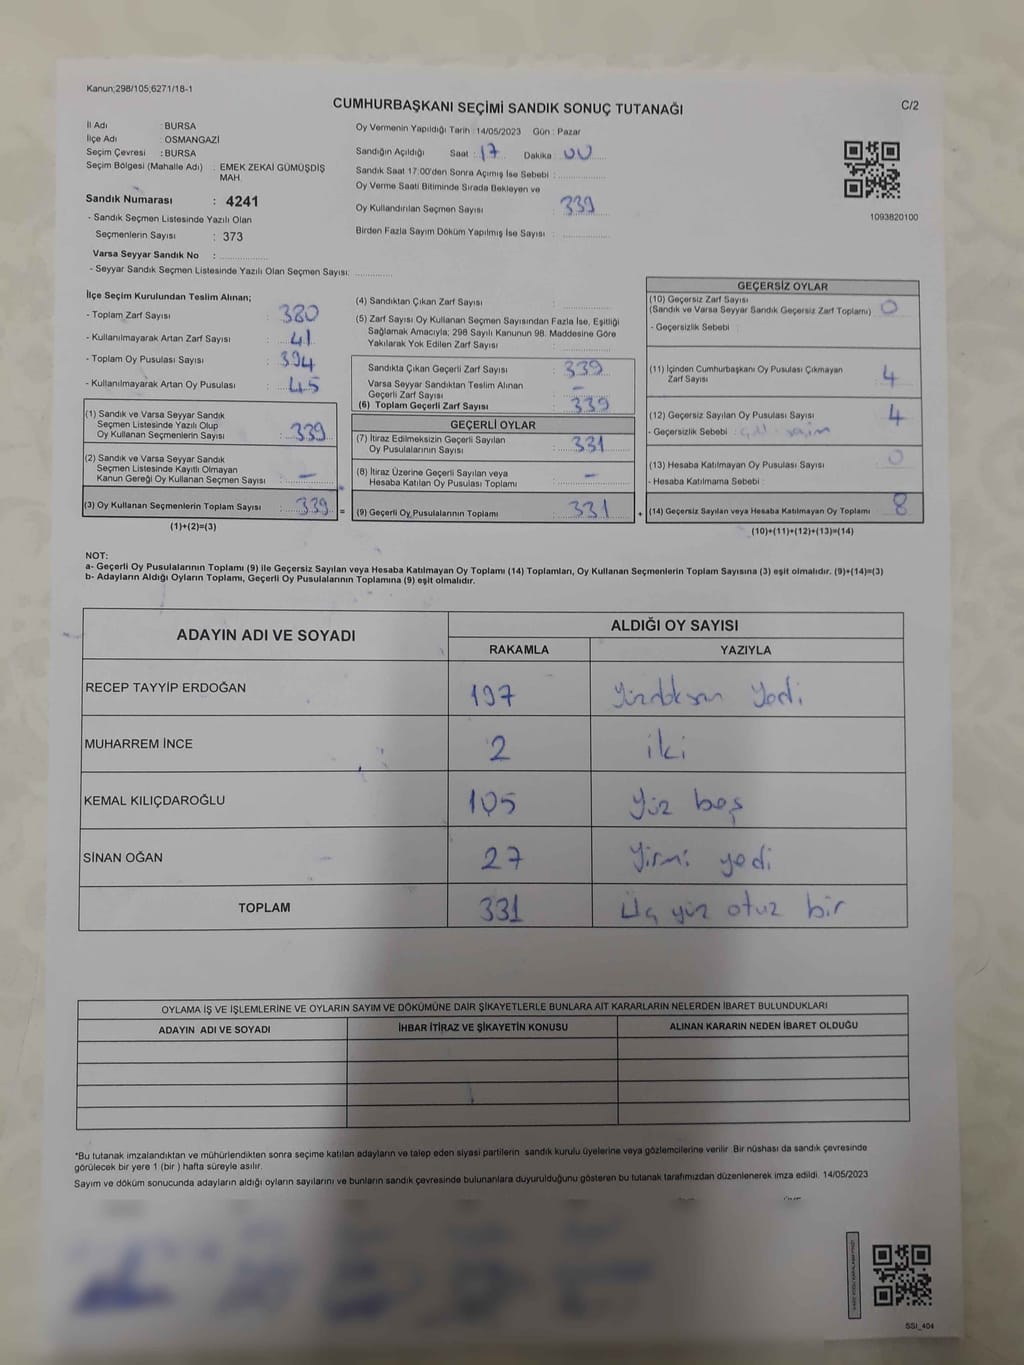 Kanun;298/105;6271/18-1
CUMHURBAŞKANI SEÇİMİ SANDIK SONUÇ TUTANAĞI
C/2
İl Adı : BURSA
İlçe Adı : OSMANGAZİ
Seçim Çevresi : BURSA
Seçim Bölgesi (Mahalle Adı) : EMEK ZEKAİ GÜMÜŞDİŞ
MAH
Sandık Numarası : 4241
- Sandık Seçmen Listesinde Yazılı Olan
Seçmenlerin Sayısı : 373
Varsa Seyyar Sandık No :
- Seyyar Sandık Seçmen Listesinde Yazılı Olan Seçmen Sayısı:
Oy Vermenin Yapıldığı Tarih : 14/05/2023 Gün : Pazar
Sandığın Açıldığı Saat : 17 Dakika : 00
Sandık Saat 17:00'den Sonra Açımış İse Sebebi :
Oy Verme Saati Bitiminde Sırada Bekleyen ve
Oy Kullandırılan Seçmen Sayısı : 339
Birden Fazla Sayım Döküm Yapılmış İse Sayısı :
1093820100
İlçe Seçim Kurulundan Teslim Alınan;
- Toplam Zarf Sayısı : 380
- Kullanılmayarak Artan Zarf Sayısı : 41
- Toplam Oy Pusulası Sayısı : 394
- Kullanılmayarak Artan Oy Pusulası : 45
(1) Sandık ve Varsa Seyyar Sandık
Seçmen Listesinde Yazılı Olup
Oy Kullanan Seçmenlerin Sayısı : 339
(2) Sandık ve Varsa Seyyar Sandık
Seçmen Listesinde Kayıtlı Olmayan
Kanun Gereği Oy Kullanan Seçmen Sayısı : –
(3) Oy Kullanan Seçmenlerin Toplam Sayısı : 339
(1)+(2)=(3)
(4) Sandıktan Çıkan Zarf Sayısı :
(5) Zarf Sayısı Oy Kullanan Seçmen Sayısından Fazla İse, Eşitliği
Sağlamak Amacıyla; 298 Sayılı Kanunun 98. Maddesine Göre
Yakılarak Yok Edilen Zarf Sayısı :
Sandıkta Çıkan Geçerli Zarf Sayısı : 339
Varsa Seyyar Sandıktan Teslim Alınan
Geçerli Zarf Sayısı : –
(6) Toplam Geçerli Zarf Sayısı : 339
GEÇERLİ OYLAR
(7) İtiraz Edilmeksizin Geçerli Sayılan
Oy Pusulalarının Sayısı : 331
(8) İtiraz Üzerine Geçerli Sayılan veya
Hesaba Katılan Oy Pusulası Toplamı : –
= (9) Geçerli Oy Pusulalarının Toplamı : 331
GEÇERSİZ OYLAR
(10) Geçersiz Zarf Sayısı
(Sandık ve Varsa Seyyar Sandık Geçersiz Zarf Toplamı) : 0
- Geçersizlik Sebebi :
(11) İçinden Cumhurbaşkanı Oy Pusulası Çıkmayan
Zarf Sayısı : 4
(12) Geçersiz Sayılan Oy Pusulası Sayısı : 4
- Geçersizlik Sebebi :
(13) Hesaba Katılmayan Oy Pusulası Sayısı : 0
- Hesaba Katılmama Sebebi :
+ (14) Geçersiz Sayılan veya Hesaba Katılmayan Oy Toplamı : 8
(10)+(11)+(12)+(13)=(14)
NOT:
a- Geçerli Oy Pusulalarının Toplamı (9) ile Geçersiz Sayılan veya Hesaba Katılmayan Oy Toplamı (14) Toplamları, Oy Kullanan Seçmenlerin Toplam Sayısına (3) eşit olmalıdır. (9)+(14)=(3)
b- Adayların Aldığı Oyların Toplamı, Geçerli Oy Pusulalarının Toplamına (9) eşit olmalıdır.
ADAYIN ADI VE SOYADI
ALDIĞI OY SAYISI
RAKAMLA YAZIYLA
RECEP TAYYİP ERDOĞAN 197 yedi
MUHARREM İNCE 2 iki
KEMAL KILIÇDAROĞLU 105 yüz beş
SİNAN OĞAN 27 yirmi yedi
TOPLAM 331 Üç yüz otuz bir
OYLAMA İŞ VE İŞLEMLERİNE VE OYLARIN SAYIM VE DÖKÜMÜNE DAİR ŞİKAYETLERLE BUNLARA AİT KARARLARIN NELERDEN İBARET BULUNDUKLARI
ADAYIN ADI VE SOYADI İHBAR İTİRAZ VE ŞİKAYETİN KONUSU ALINAN KARARIN NEDEN İBARET OLDUĞU
*Bu tutanak imzalandıktan ve mühürlendikten sonra seçime katılan adayların ve talep eden siyasi partilerin sandık kurulu üyelerine veya gözlemcilerine verilir. Bir nüshası da sandık çevresinde
görülecek bir yere 1 (bir ) hafta süreyle asılır.
Sayım ve döküm sonucunda adayların aldığı oyların sayılarını ve bunların sandık çevresinde bulunanlara duyurulduğunu gösteren bu tutanak tarafımızdan düzenlenerek imza edildi. 14/05/2023
SSI_404